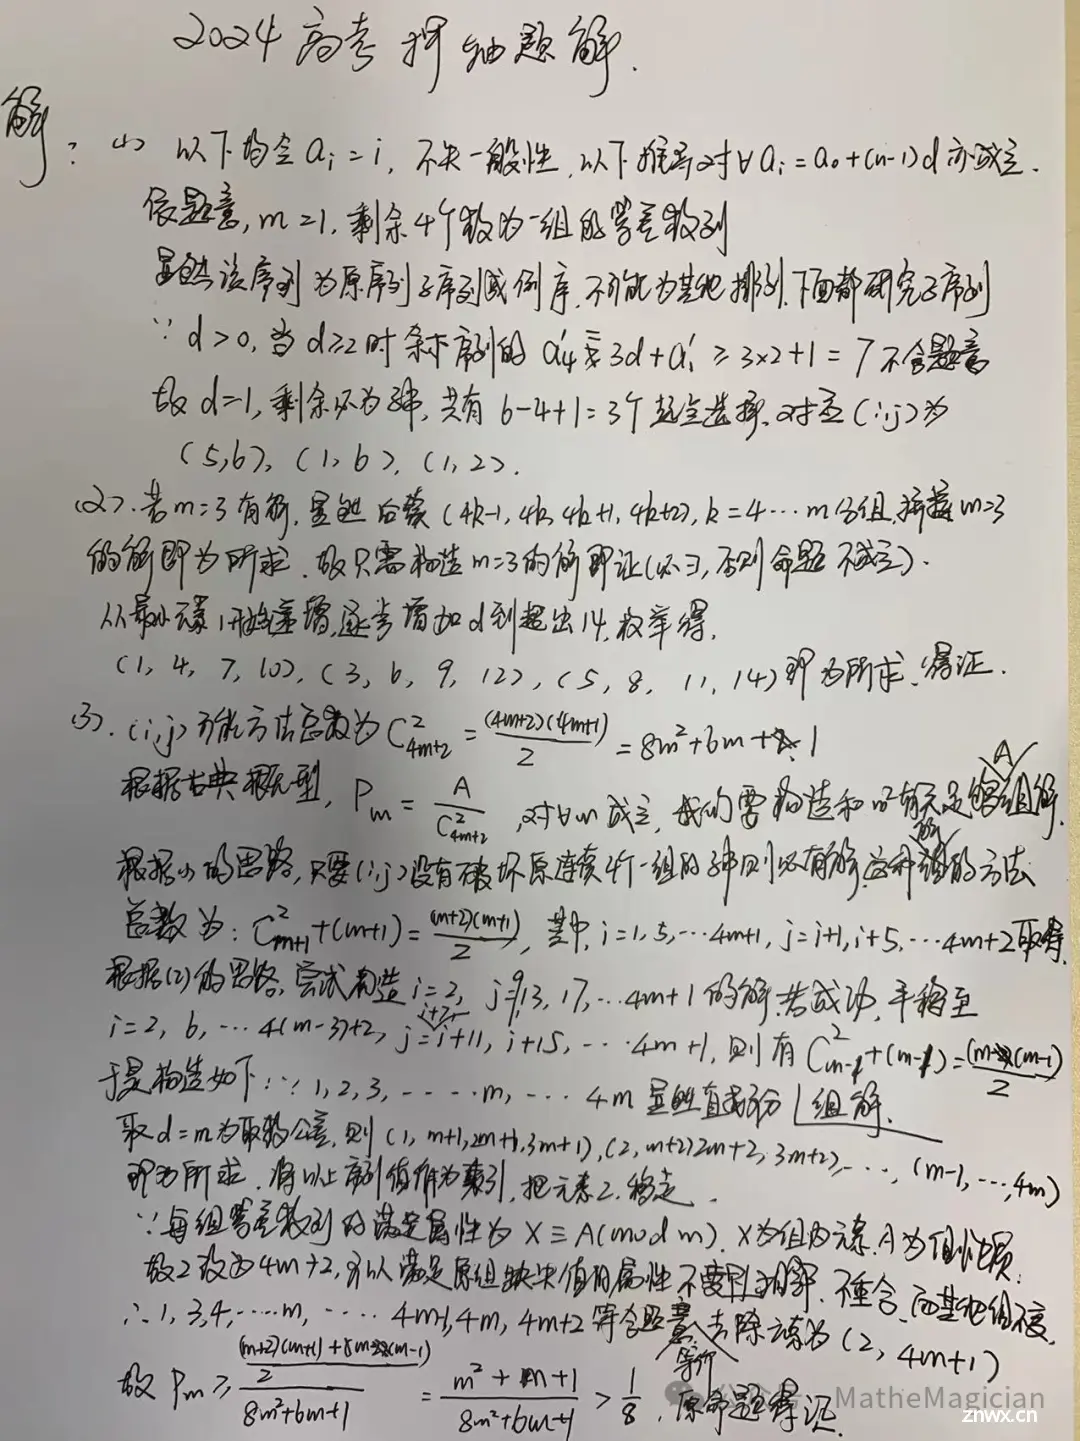 2024高考押轴题解.
解: (1) 以下均令 aᵢ=i, 不失一般性, 以下推导对∀aᵢ=a₀+(n-1)d 亦成立.
依题意, m=1, 剩余4个数为一组的等差数列
显然该序列为原序列子序列或倒序, 不可能为其他排列, 下面都研究子序列
∵ d>0, 当 d≥2时 余下序列的 a₄' 3d+a₁' ≥ 3×2+1=7 不合题意
故 d=1, 剩余必为, 共有 6-4+1=3个起全选择, 对应(i,j)为
(5,6), (1,6), (1,2).
(2). 若m=3有解, 显然后续(4k-1, 4k, 4k+1, 4k+2), k=4…m 分组, 拼接m=3
的解即为所求. 故只需构造m=3的解即证(必∃, 否则命题不成立).
从最小元素1开始递增, 逐步增加d到超出14, 枚举得,
(1, 4, 7, 10), (3, 6, 9, 12), (5, 8, 11, 14) 即为所求, 得证.
(3). (i,j)可能方法总数为 C²₄ₘ₊₂ = (4m+2)(4m+1)/2 = 8m²+6m+1
根据古典概型, Pₘ = A/C²₄ₘ₊₂, 对∀m成立, 我们需构造和m²有关足够A组解.
根据(1)的思路, 只要(i,j)没有破坏原连续4个一组的则必有解, 这种解的方法
总数为: C²ₘ₊₁+(m+1) = (m+2)(m+1)/2, 其中, i=1,5,…4m+1, j=i+1, i+5, …4m+2取得.
根据(2)的思路, 尝试构造 i=2, j=9,13,17,…4m+1的解, 若成功, 平移至
i=2, 6, …4(m-3)+2, j=i+7, i+11, i+15, …4m+1, 则有 C²ₘ₋₁+(m-1)=(m-1)/2
于是构造如下: ∵ 1,2,3, ……m, …4m 显然直接分 1组解.
取 d=m为取数公差, 则(1, m+1, 2m+1, 3m+1), (2, m+2, 2m+2, 3m+2), …, (m-1, …, 4m)
即为所求. 将以上序列值作为索引, 把元素2,移走.
∵ 每组等差数列的满足属性为 X≡A(mod m), X为组内元素, A为组
故2改为4m+2, 可以满足原组缺失值的属性 不重合, 而其他组不变.
∴ 1,3,4,……m, ……4m-1, 4m, 4m+2 符合题意, 去除元素为(2, 4m+1)
故 Pₘ ≥ (m+2)(m+1)+(m-1)/2 / 8m²+6m+1 = m²+m+1 / 8m²+6m+1 > 1/8, 原命题得证.
MatheMagician
znwx.cn